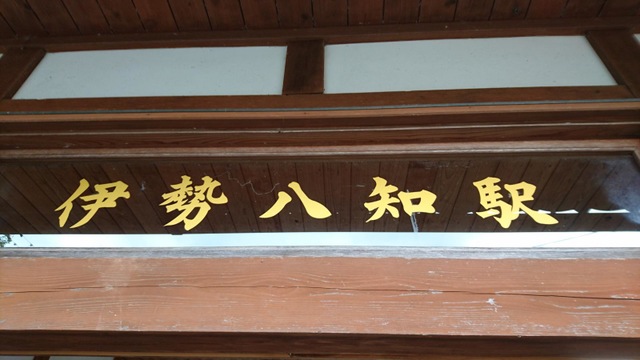 伊勢八知駅